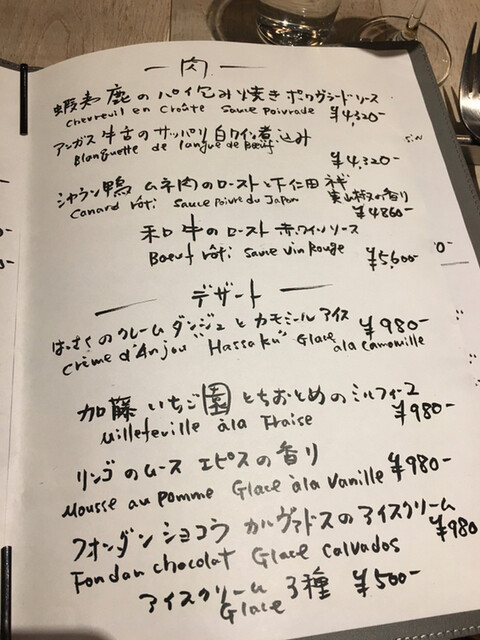 肉
蝦夷鹿のパイ包み焼き ポワヴラードソース
Chevreuil en Croûte Sauce poivrade ¥4,320-
アンガス牛舌のサッパリ白ワイン煮込み
Blanquette de langue de Bœuf
¥4,320-
シャラン鴨 ムネ肉のローストと下仁田ネギ
Canard rôti Sauce Poivre du Japon 実山椒の香り
¥4860-
和牛のロースト 赤ワインソース
Bœuf rôti Sauce Vin Rouge ¥5,600-
デザート
はっさくのクレームダンジュとカモミールアイス ¥980-
Crème d'Anjou "Hassaku" Glace à la Camomille
加藤いちご園とちおとめのミルフィーユ
Millefeuille à la Fraise ¥980-
リンゴのムース エピスの香り
Mousse au pomme Glace à la Vanille ¥980-
フォンダンショコラ カルヴァドスのアイスクリーム
Fondan chocolat Glace Calvados ¥980
アイスクリーム 3種 ¥500-
Glace